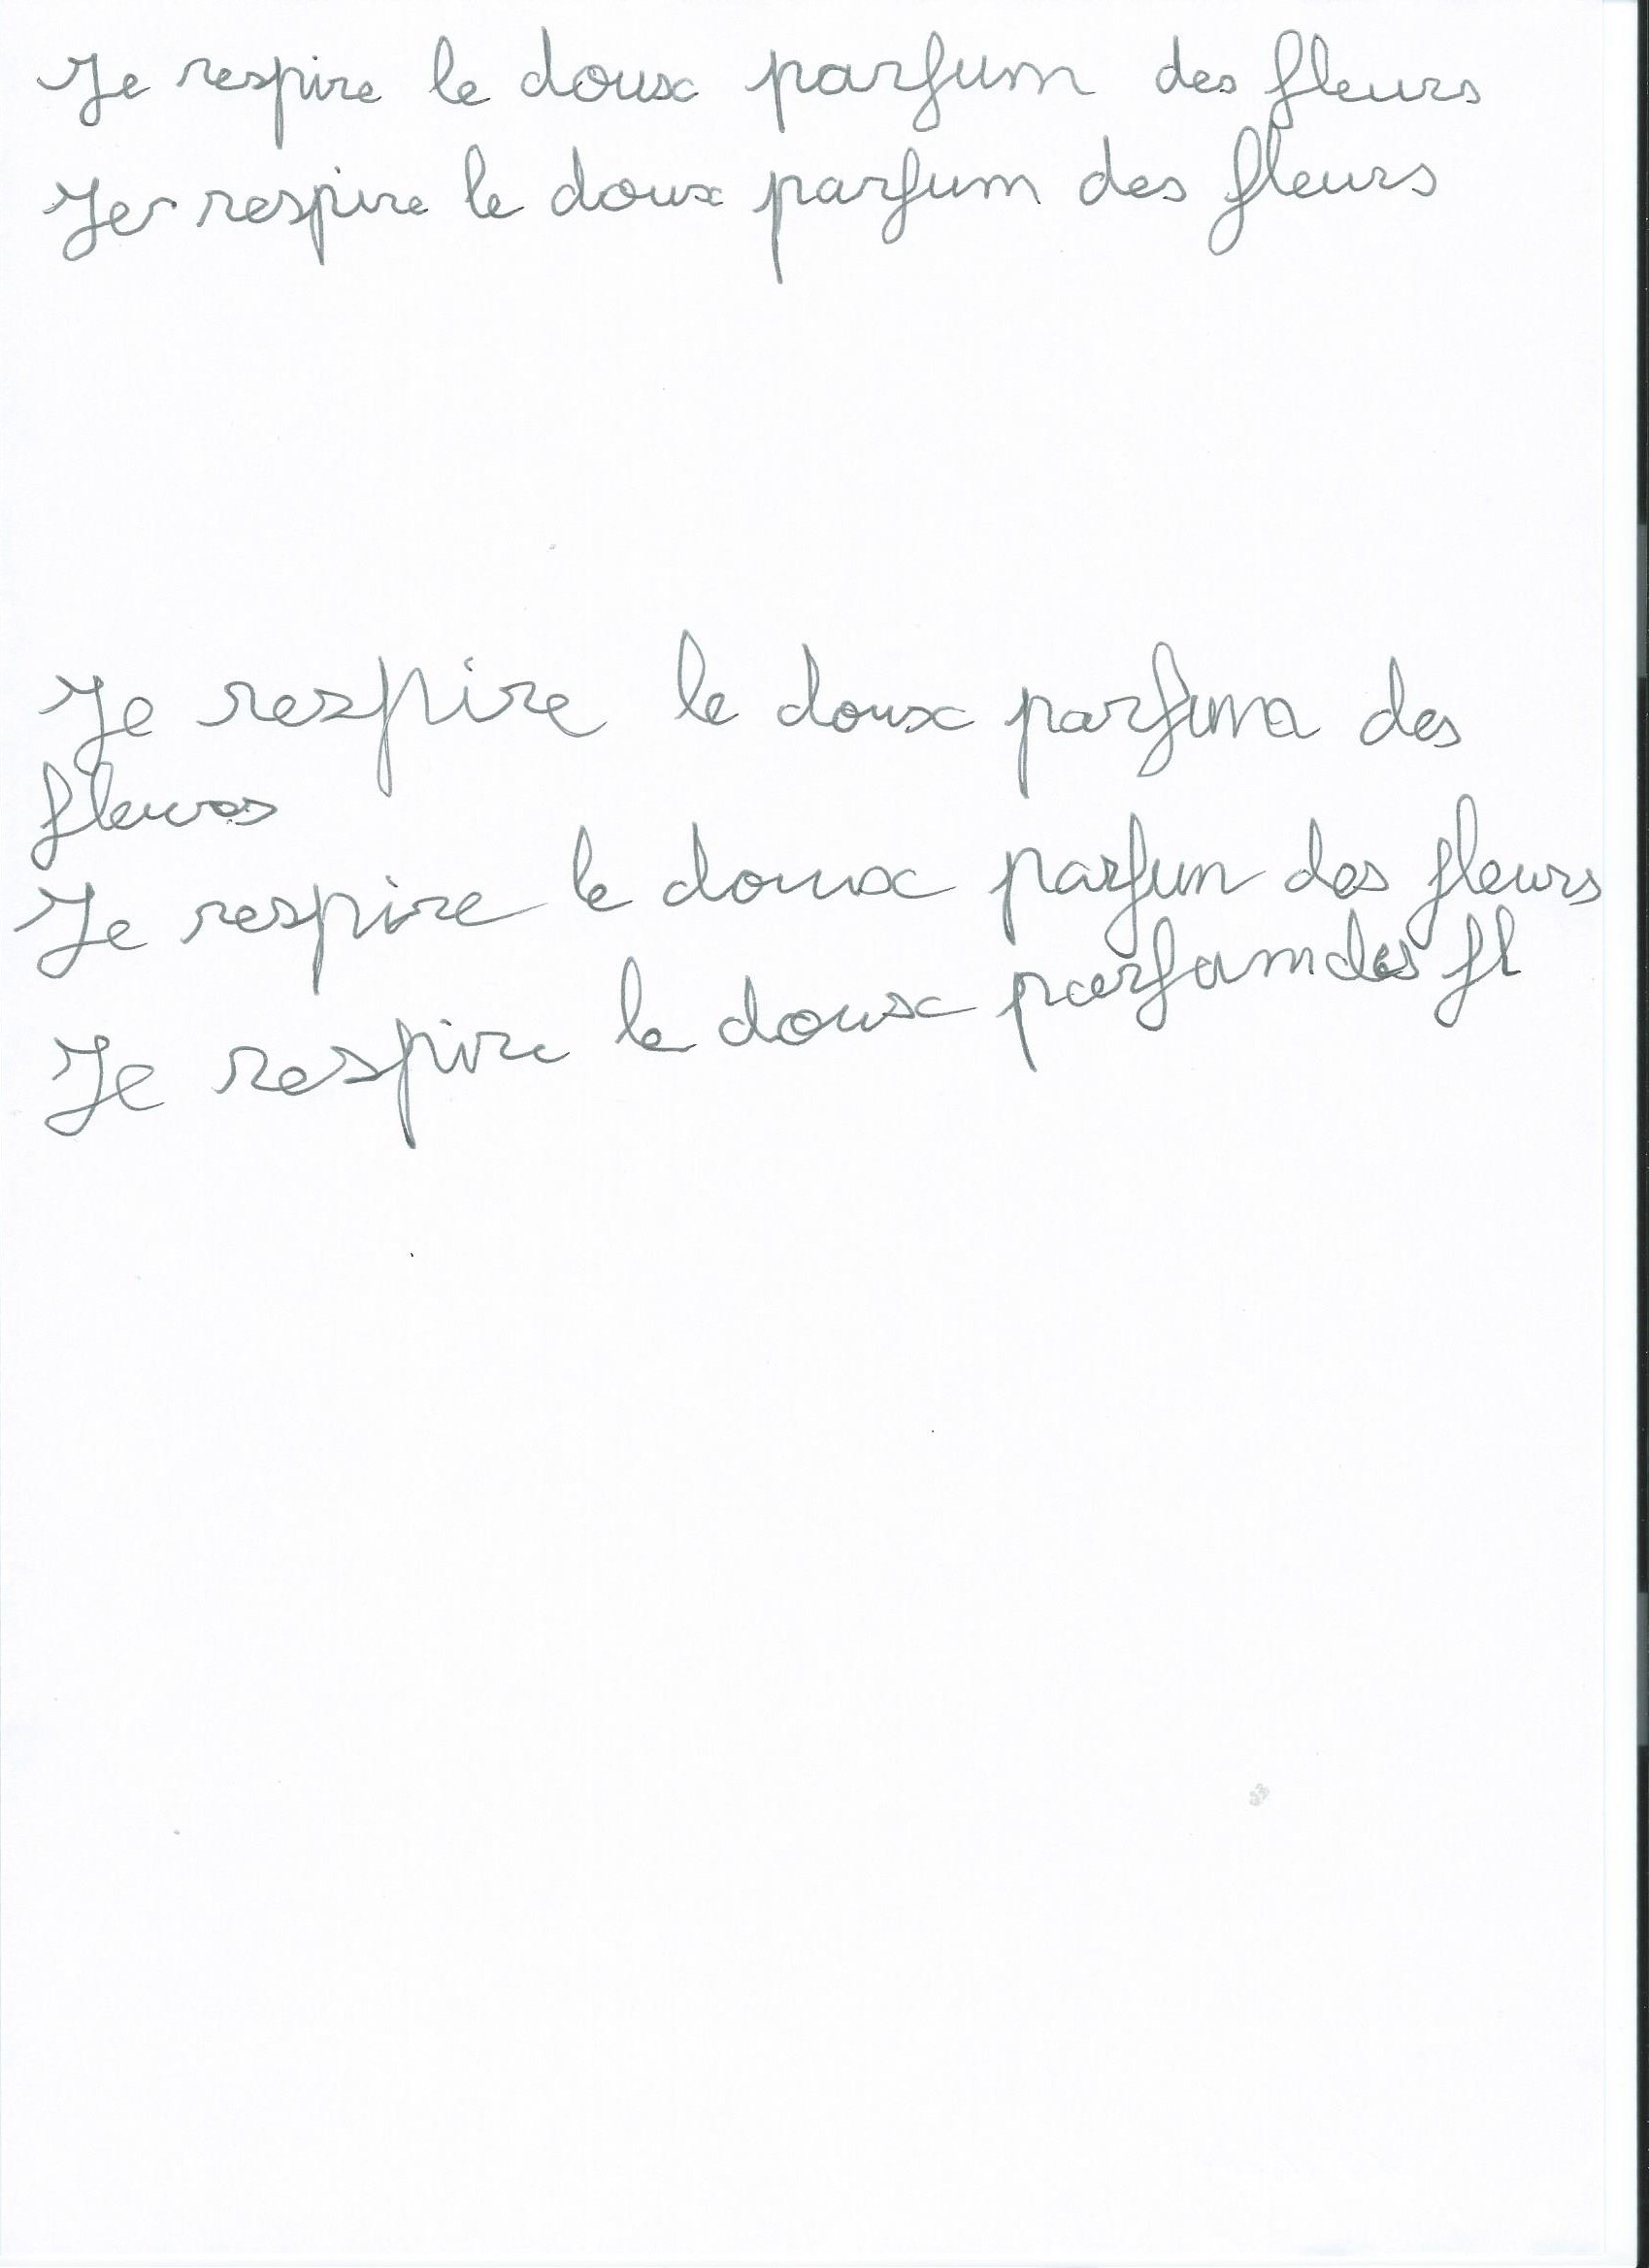 Je respire le doux parfum des fleurs
Je respire le doux parfum des fleurs
Je respire le doux parfum des
fleurs
Je respire le doux parfun des fleurs
Je respire le doux parfum des fl